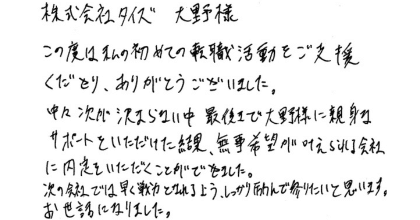 株式会社タイズ 大野様
この度は私の初めての転職活動をご支援
くださり、ありがとうございました。
中々次が決まらない中 最後まで大野様に親身な
サポートをいただけた結果、無事希望が叶えられる会社
に内定をいただくことができました。
次の会社では早く戦力となれるよう、しっかり励んで参りたいと思います。
お世話になりました。